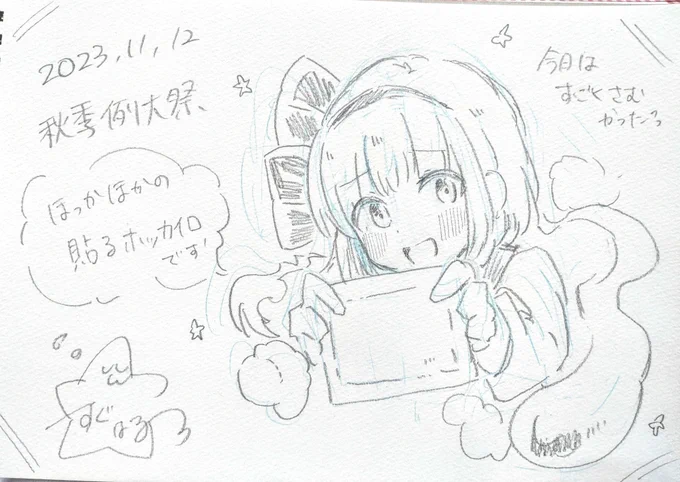 2023.11.12
秋季例大祭、
今日は
すごくさむ
かったっ
ほっかほかの
貼るホッカイロ
です!
すぐはる